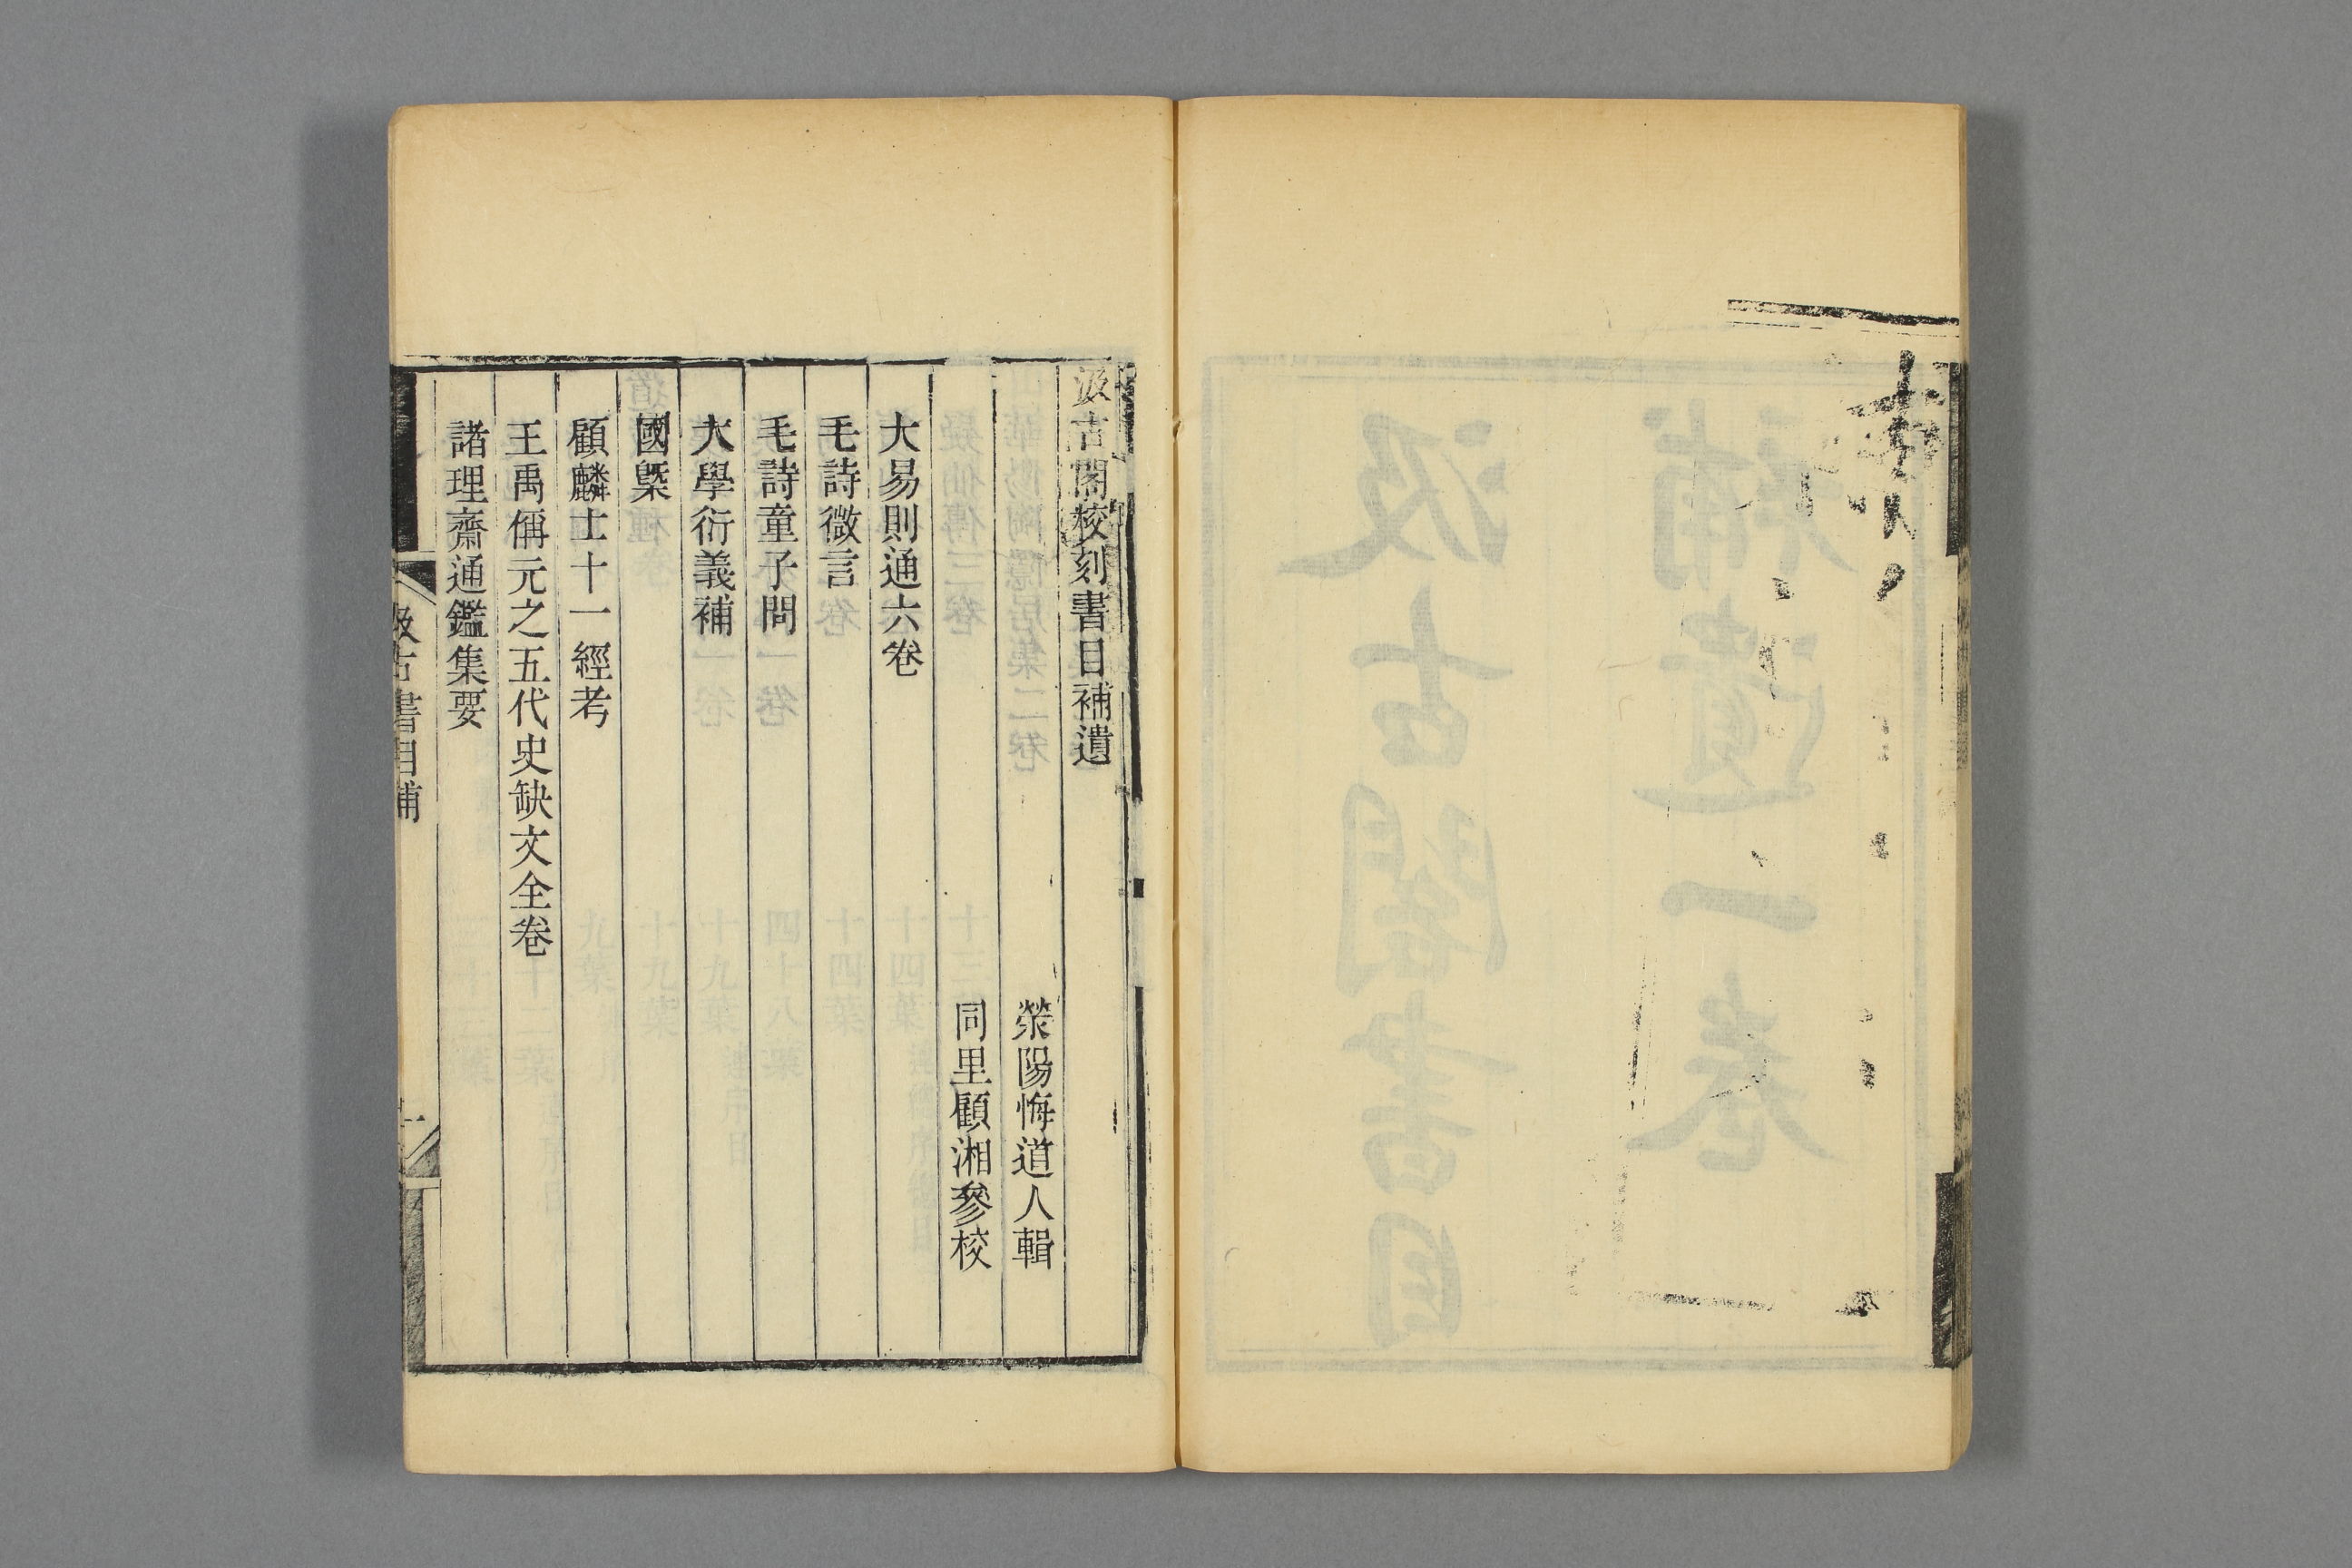 汲古閣校刻書目補遺
滎陽悔道人輯
同里顧湘參校
大易則通六卷
毛詩微言
毛詩童子問
大學衍義補
國槩
顧麟士十一經考
王禹偁元之五代史缺文全卷
諸理齋通鑑集要
汲古書目補